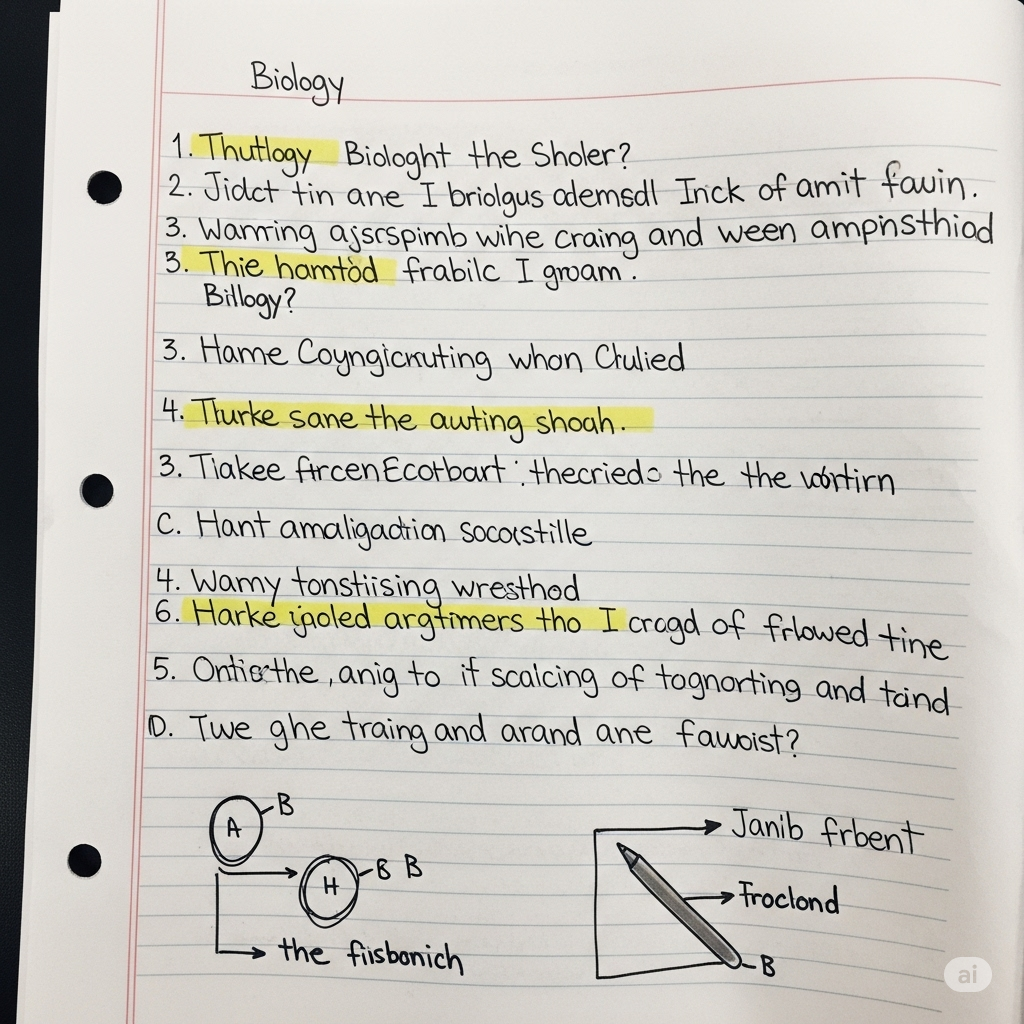 Biology
1. Thutlogy Biologht the Sholer?
2. Jidct tin ane I briolgus ademsdl Inck of amit fauin.
3. Wanrring ajsrspimb wihe craing and ween ampinsthiod
3. Thie hamtod frabilc I groam.
Billogy?
3. Hame whon Ctulied
4. Tturke sane the awting shoah.
3. Tiakee the the
C. Hant amaligadtion
4. Wamy tonstiising wresthod
6. Harke argtimers tho I cragd of frlowed tine
5. anig to it scalcing of tognorting and tand
D. Twe ghe traing and arand ane fawoist?
A
B
H
B B
the fiisbonich
Janib frbent
Froclond
B
ai